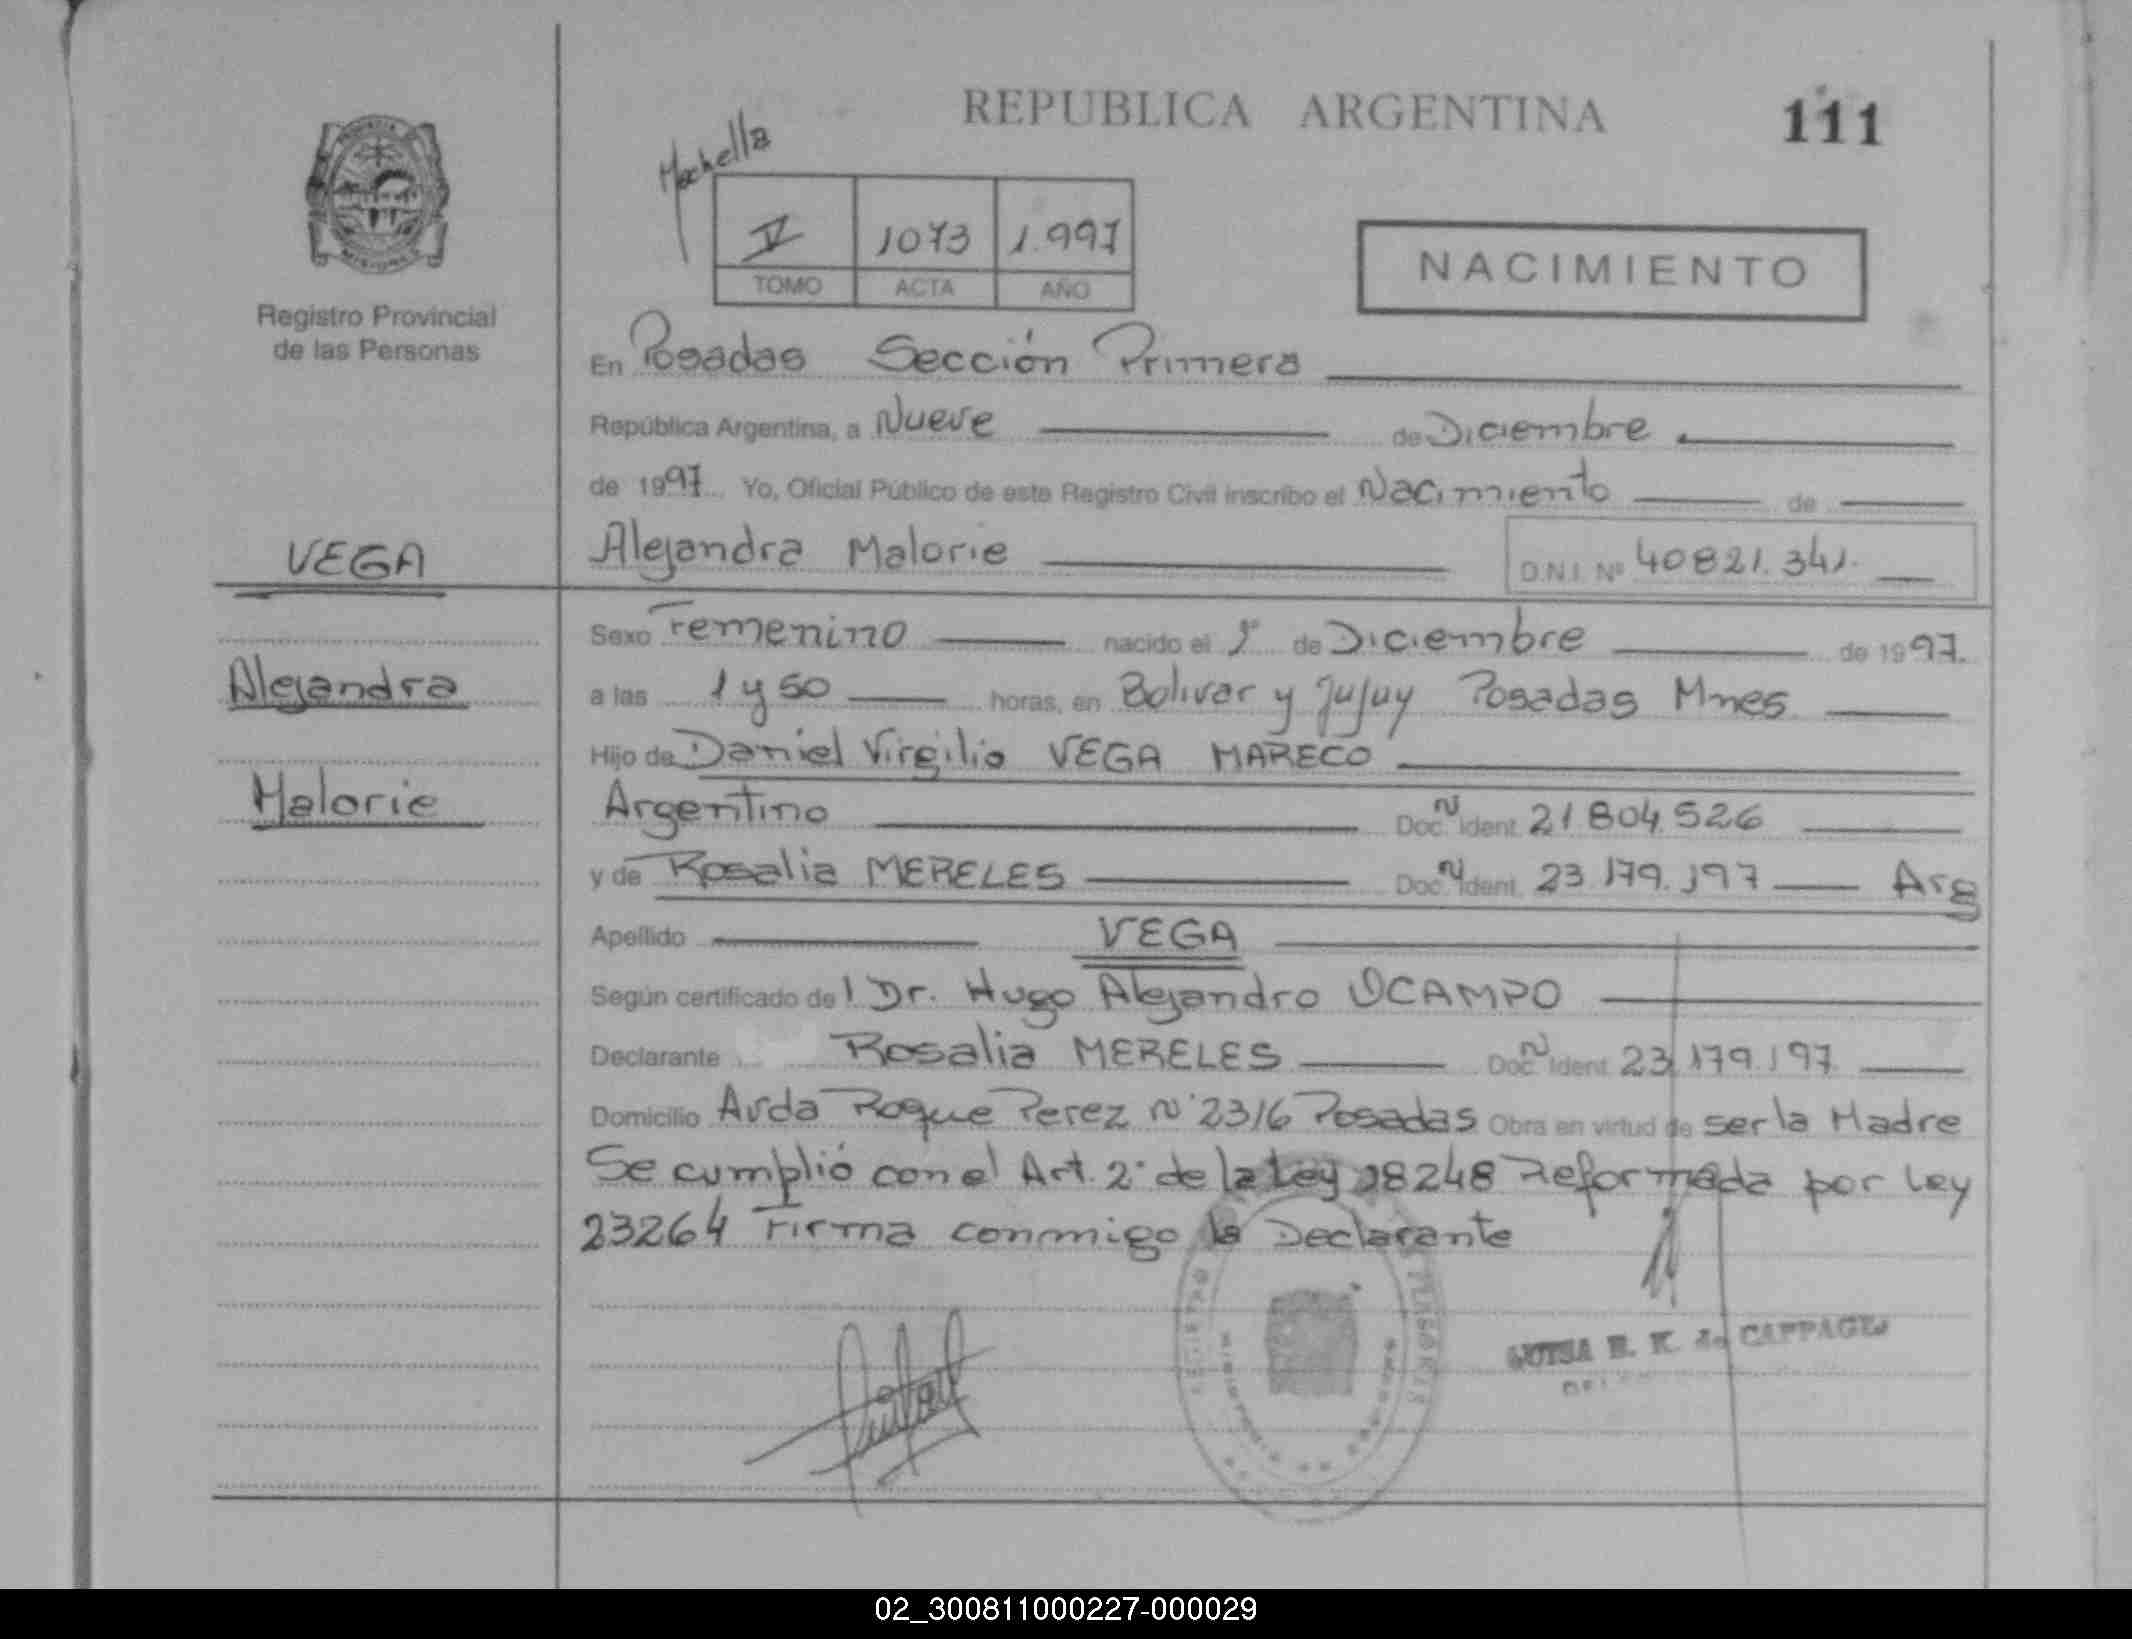 REPUBLICA ARGENTINA
111
V 1073 1.997
TOMO ACTA AÑO
NACIMIENTO
Registro Provincial
de las Personas
En Posadas Sección Primera
República Argentina, a Nueve de Diciembre
de 1997 Yo, Oficial Público de este Registro Civil inscribo el Nacimiento de
VEGA
Alejandra Malorie D.N.I. Nº 40821.341.
Sexo Femenino nacido el 1º de Diciembre de 1997.
Alejandra
a las 1 y 50 horas, en Bolivar y Jujuy Posadas Mnes
Hijo de Daniel Virgilio VEGA MARECO
Malorie
Argentino Doc. N Ident. 21804.526
y de Rosalia MERELES Doc. N Ident. 23.179.197 Arg
Apellido VEGA
Según certificado del Dr. Hugo Alejandro OCAMPO
Declarante Rosalia MERELES Doc. N Ident. 23.179.197
Domicilio Avda Roque Perez Nº 2316 Posadas Obra en virtud de ser la Madre
Se cumplió con el Art. 2º de la Ley 18248 Reformada por Ley
23264 Firma conmigo la Declarante
E. K. de CAPPAGLI
02_300811000227-000029